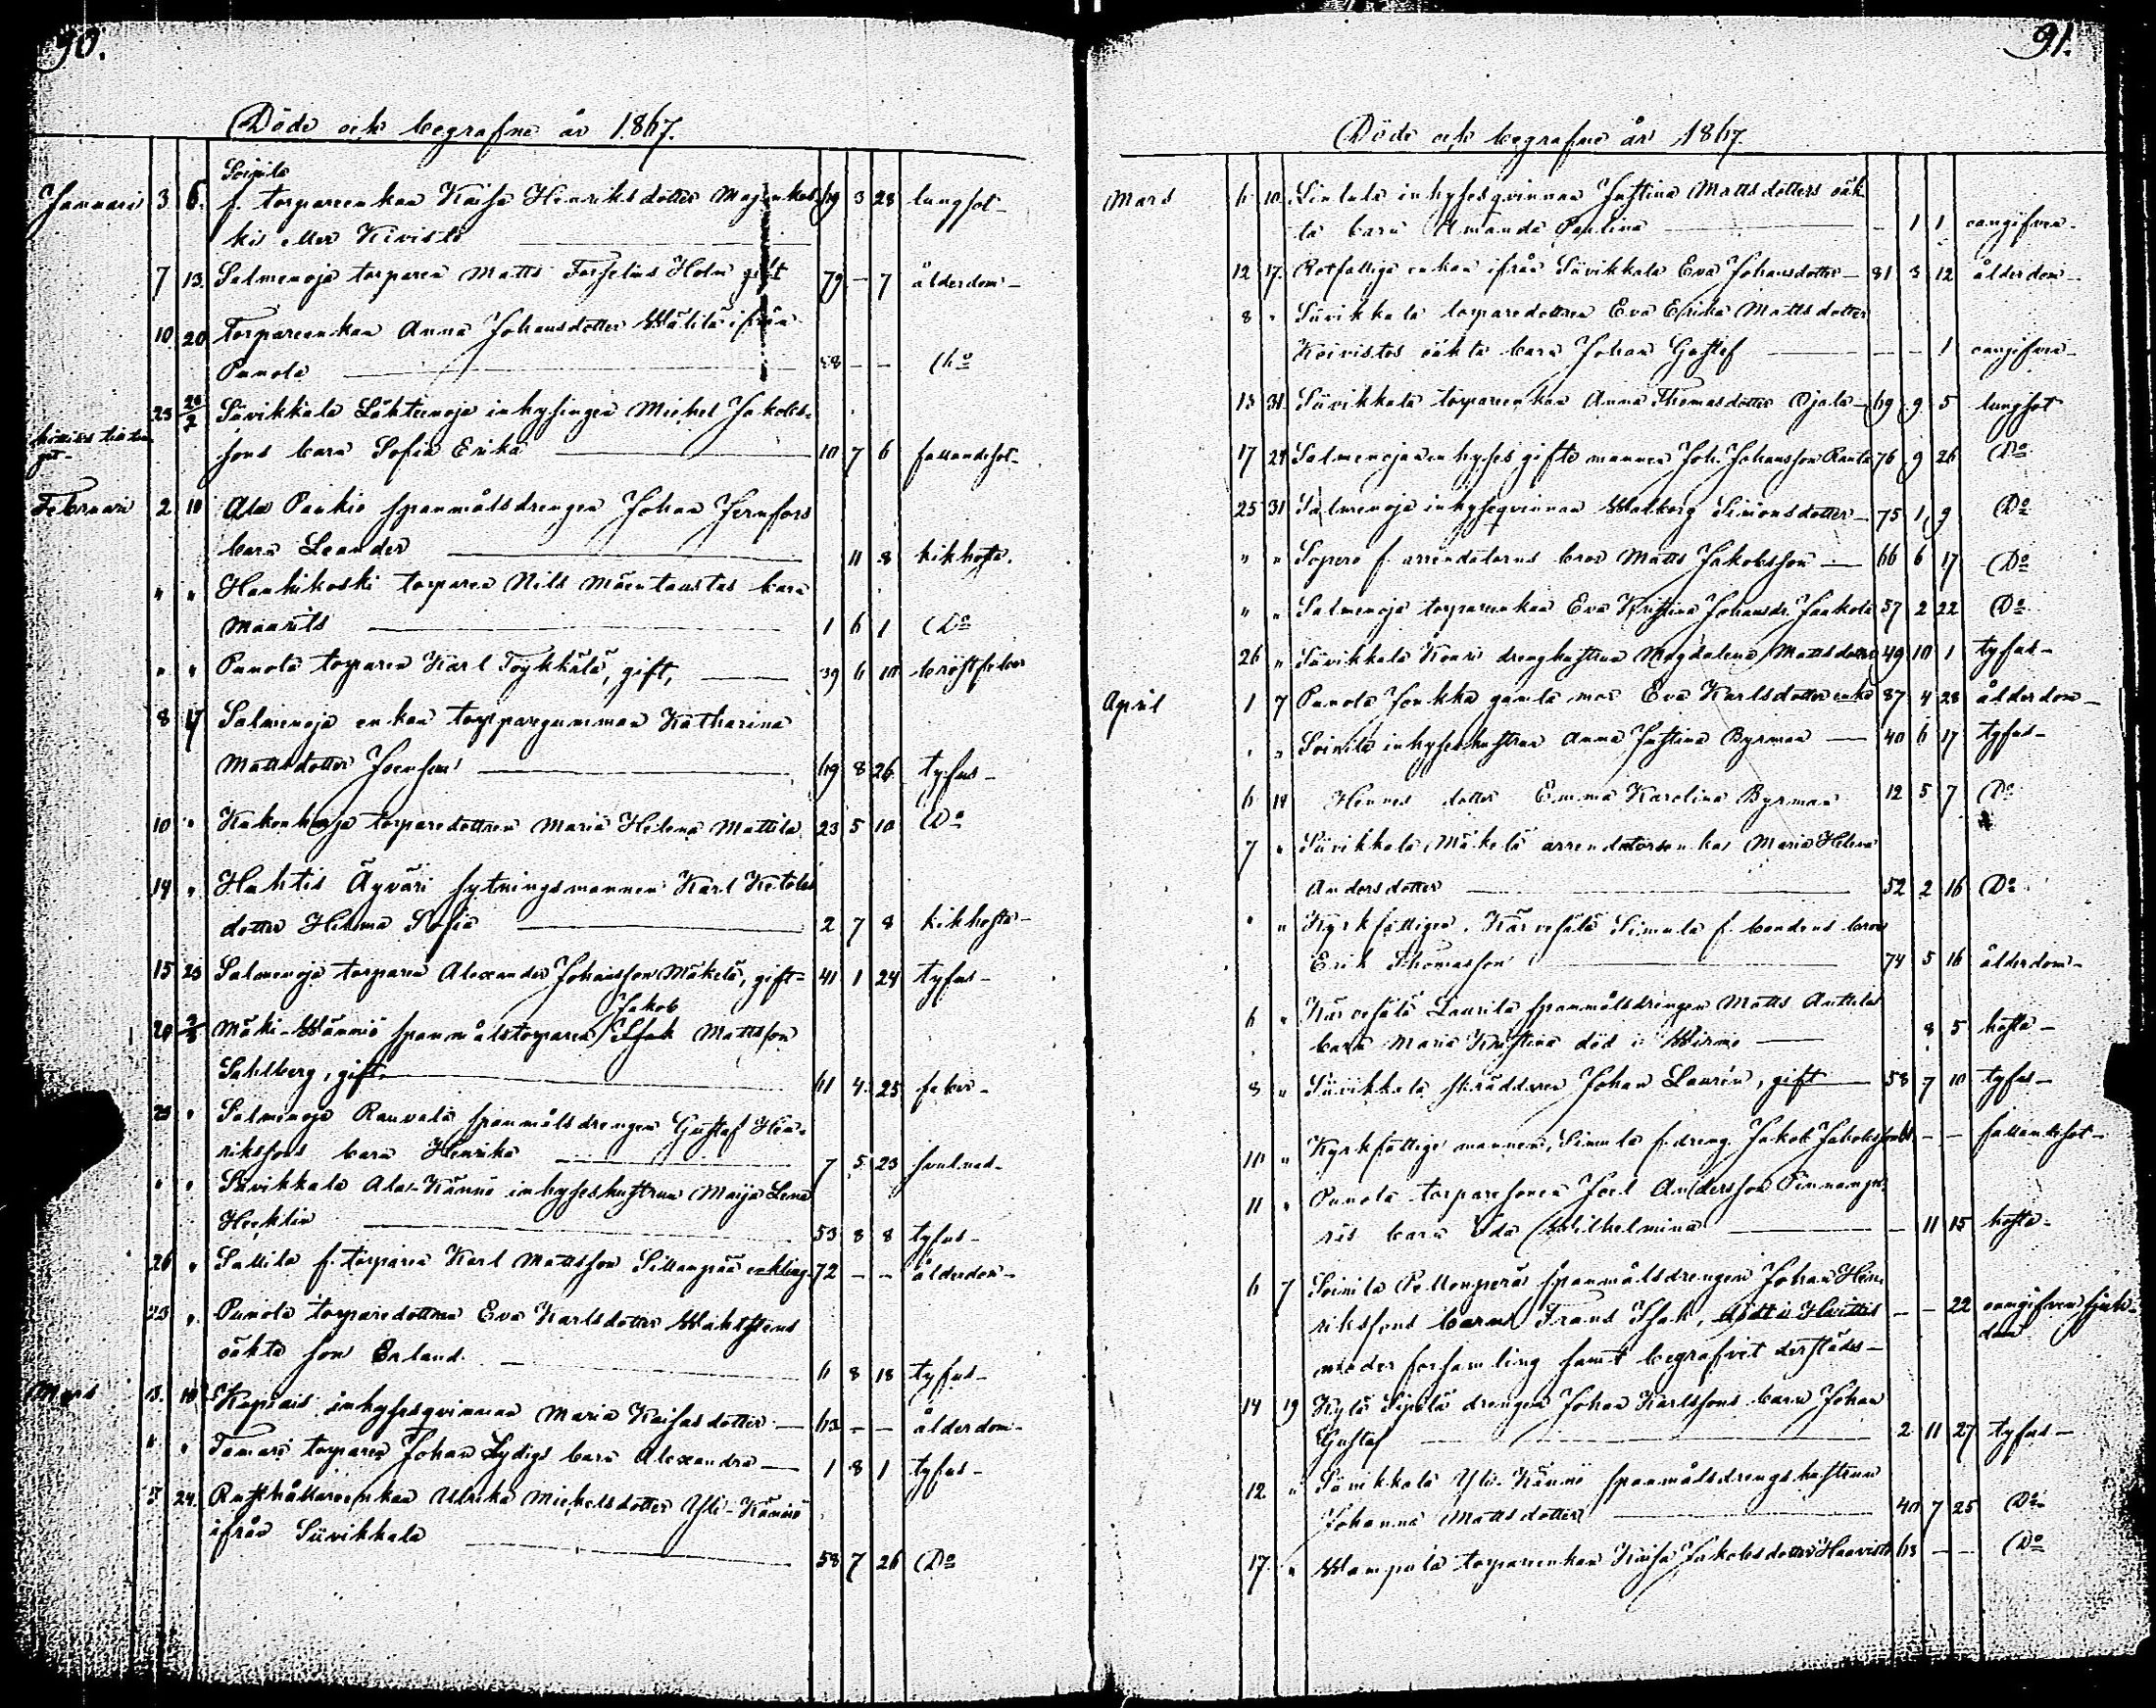 90.
Döde och begrafne år 1867.
Januari 3 6. Soinila
f. torpareenkan Kaisa Henriksdotter 69 3 28 lungsot
ki eller Kivistö
7 13. Salmenoja torparen Matts Forselius Holm gift 79 - 7 ålderdom
10 20 Torpareenkan Anna Johansdotter Wälilä ifrån
Punola 58 - - Do
23 Siivikkala Lähteenoja inhysingen Michel Jakobs-
sons barn Sofia Erika 10 7 6 fallandesot
Februari 2 10 Ala Paukio spanmålsdrengen Johan Jernfors
barn Leander 11 8 kikhosta.
" " Hanhikoski torparen Nils Mäentaustas barn
Maurits 1 6 1 Do
" " Punola torparen Karl Töykkälä, gift, 39 6 10 bröstfeber
8 17 Salmenoja enkan torparegumman Katharina
Mattsdotter 69 8 26 tyfus
10 " torparedottren Maria Helena Mattila 23 5 10 Do
14 " Huhtis Äyväri sytningsmannen Karl Ketolas
dotter Helena Sofia 2 7 8 kikhosta
15 23 Salmenoja torparen Alexander Johansson Mäkelä, gift 41 1 24 tyfus
Jakob
20 3/3 Mäki-Wänniö spanmålstorparen Isak Mattsson
Sahlberg, gift 61 4 25 feber
23 " Salmenoja Rauvala spanmålsdrengen Gustaf Hen-
rikssons barn Henrika 7 5 23 svulnad
" " Siivikkala Ala-Kännö inhyseshustrun Maija Lena
Hecklin 53 8 8 tyfus
26 " Sallila f. torparen Karl Mattsson Sillanpää enkling 72 - - ålderdom
23 " Punola torparedottren Eva Karlsdotter Wahlstens
oäkta son Erland 6 8 18 tyfus
Mars 3. 10 inhysesqvinnan Maria Kaisasdotter 63 - - ålderdom
" " Tamari torparen Johan Lydigs barn Alexandra 1 8 1 tyfus
5 24. Rusthållareenkan Ulrika Michelsdotter Yli-Kännö
ifrån Siivikkala 58 7 26 Do
91.
Döde och begrafne år 1867.
Mars 6 10 inhysesqvinnan Justina Mattsdotters oäk-
ta barn Amanda Paulina - 1 1 oangifven
12 17. Rotfattiga enkan ifrån Siivikkala Eva Johansdotter 81 3 12 ålderdom
8 " Siivikkala torparedottren Eva Erika Mattsdotter
Koivistos oäkta barn Johan Gustaf - - 1 oangifven
13 31. Siivikkala torpareenkan Anna Thomasdotter Ojala 69 9 5 lungsot
17 24 Salmenoja inhyses gifte mannen Joh. Johansson Ranta 76 9 26 Do
25 31 Salmenoja inhysesqvinnan Walborg Simonsdotter 75 1 9 Do
" " Sepero f. arrendatorns bror Matts Jakobsson 66 6 17 Do
" " Salmenoja torpareenkan Eva Kristina Johansdr. Jaakola 57 2 22 Do
26 " Siivikkala drenghustrun Magdalena Mattsdotter 49 10 1 tyfus
April 1 7 Punola Jonkka gamla mor Eva Karlsdotter enka 87 4 28 ålderdom
" " Soinila inhyseshustrun Anna Justina Byrman 40 6 17 tyfus
6 14 Hennes dotter Emma Karolina Byrman 12 5 7 Do
7 " Siivikkala Mäkelä arrendatorsenkan Maria Helena
Andersdotter 52 2 16 Do
" " Kyrkfattigen, Kärvesälä Simula f. bondens bror
Erik Thomasson 74 5 16 ålderdom
6 " Kärvesälä Laurila spanmålsdrengen Matts Anttilas
barn Maria Kristina död i Wirmo 8 5 hosta
8 " Siivikkala skräddaren Johan Laurén, gift 58 7 10 tyfus
10 " Kyrkfattige mannen, Simula f. dreng Jakob Jakobsson - - fallandesot
11 " Punola torparesonen Joel Andersson Pinnanju-
ris barn Ida Wilhelmina - 11 15 hosta
6 7 Soinila Pellonperä spanmålsdrengen Johan Hen-
rikssons barn Frans Isak, dödt i Huittis - - 22 oangifven sjuk-
moder församling samt begrafvit derstädes dom
14 19 Kylä Sipilä drengen Johan Karlssons barn Johan
Gustaf 2 11 27 tyfus
12 " Siivikkala Yli-Kännö spanmålsdrengshustrun
Johanna Mattsdotter 40 7 25 Do
17. " Wampula torpareenkan Kaisa Jakobsdotter Haavisto 63 - - Do